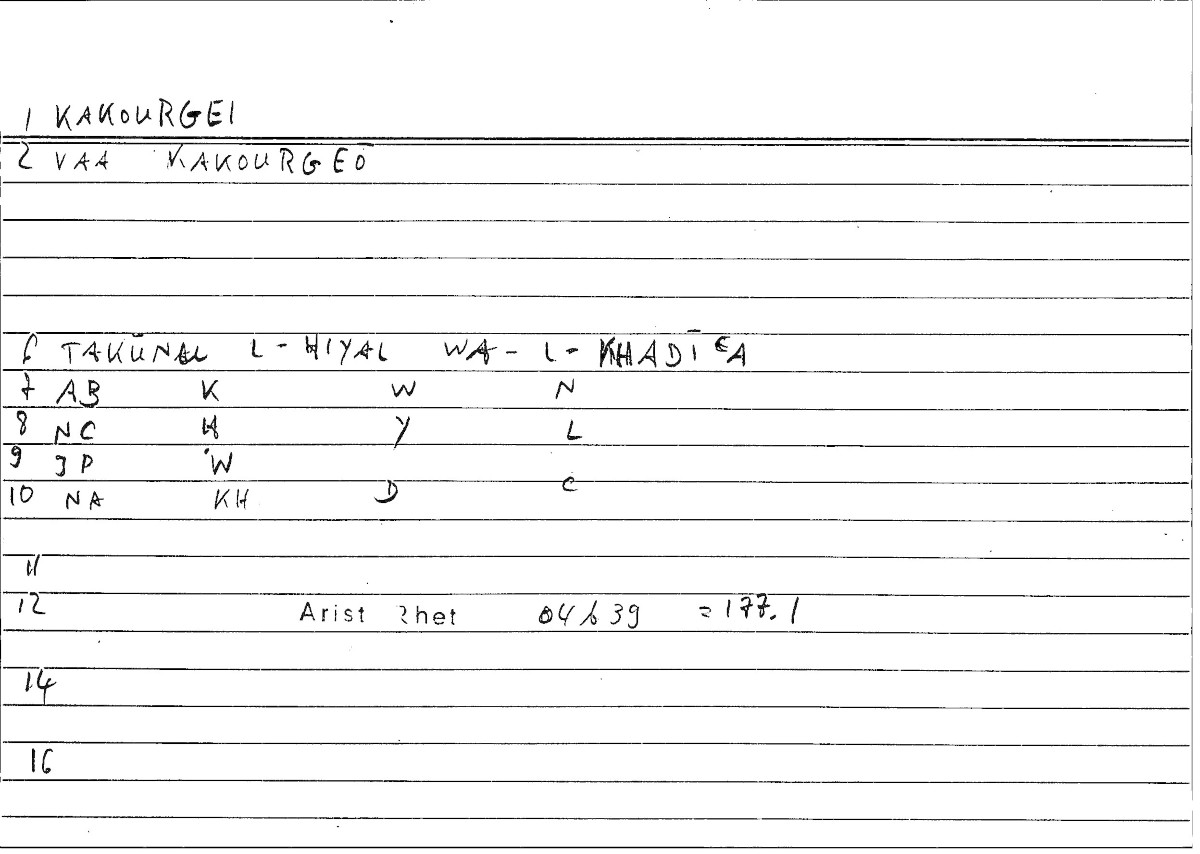 1 KAKOURGEI
2 VAA KAKOURGEŌ
6 TAKŪNAL L-HIYAL WA-L-KHADĪʿA
7 AB K W N
8 NC H Y L
9 JP W
10 NA KH D ʿ
11
12 Arist Rhet 04b39 =177.1
14
16